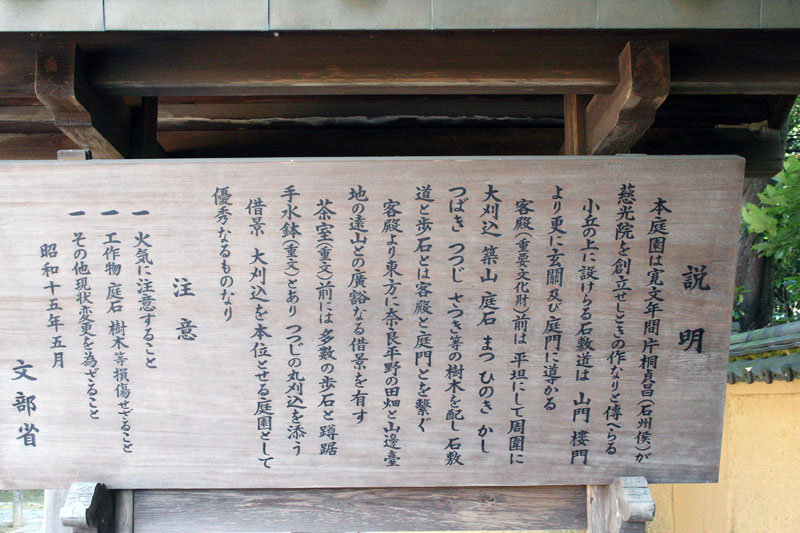 説明
本庭園は寛文年間片桐貞昌(石州侯)が
慈光院を創立せしときの作なりと傳へらる
小丘の上に設けらる石敷道は 山門 樓門
より更に玄關及び庭門に導かる
客殿(重要文化財)前は 平坦にして周圍に
大刈込 築山 庭石 まつ ひのき かし
つばき つつじ さつき等の樹木を配し 石敷
道と歩石とは客殿と庭門とを繋ぐ
客殿より東方に奈良平野の田畑と山邊臺
地の遠山との廣豁なる借景を有す
茶室(重文)前には多数の歩石と蹲踞
手水鉢(重文)とあり つつじの丸刈込を添う
借景 大刈込を本位とせる庭園として
優秀なるものなり
注意
一 火気に注意すること
一 工作物 庭石 樹木等損傷せざること
一 その他現状変更を為ざること
昭和十五年五月
文部省